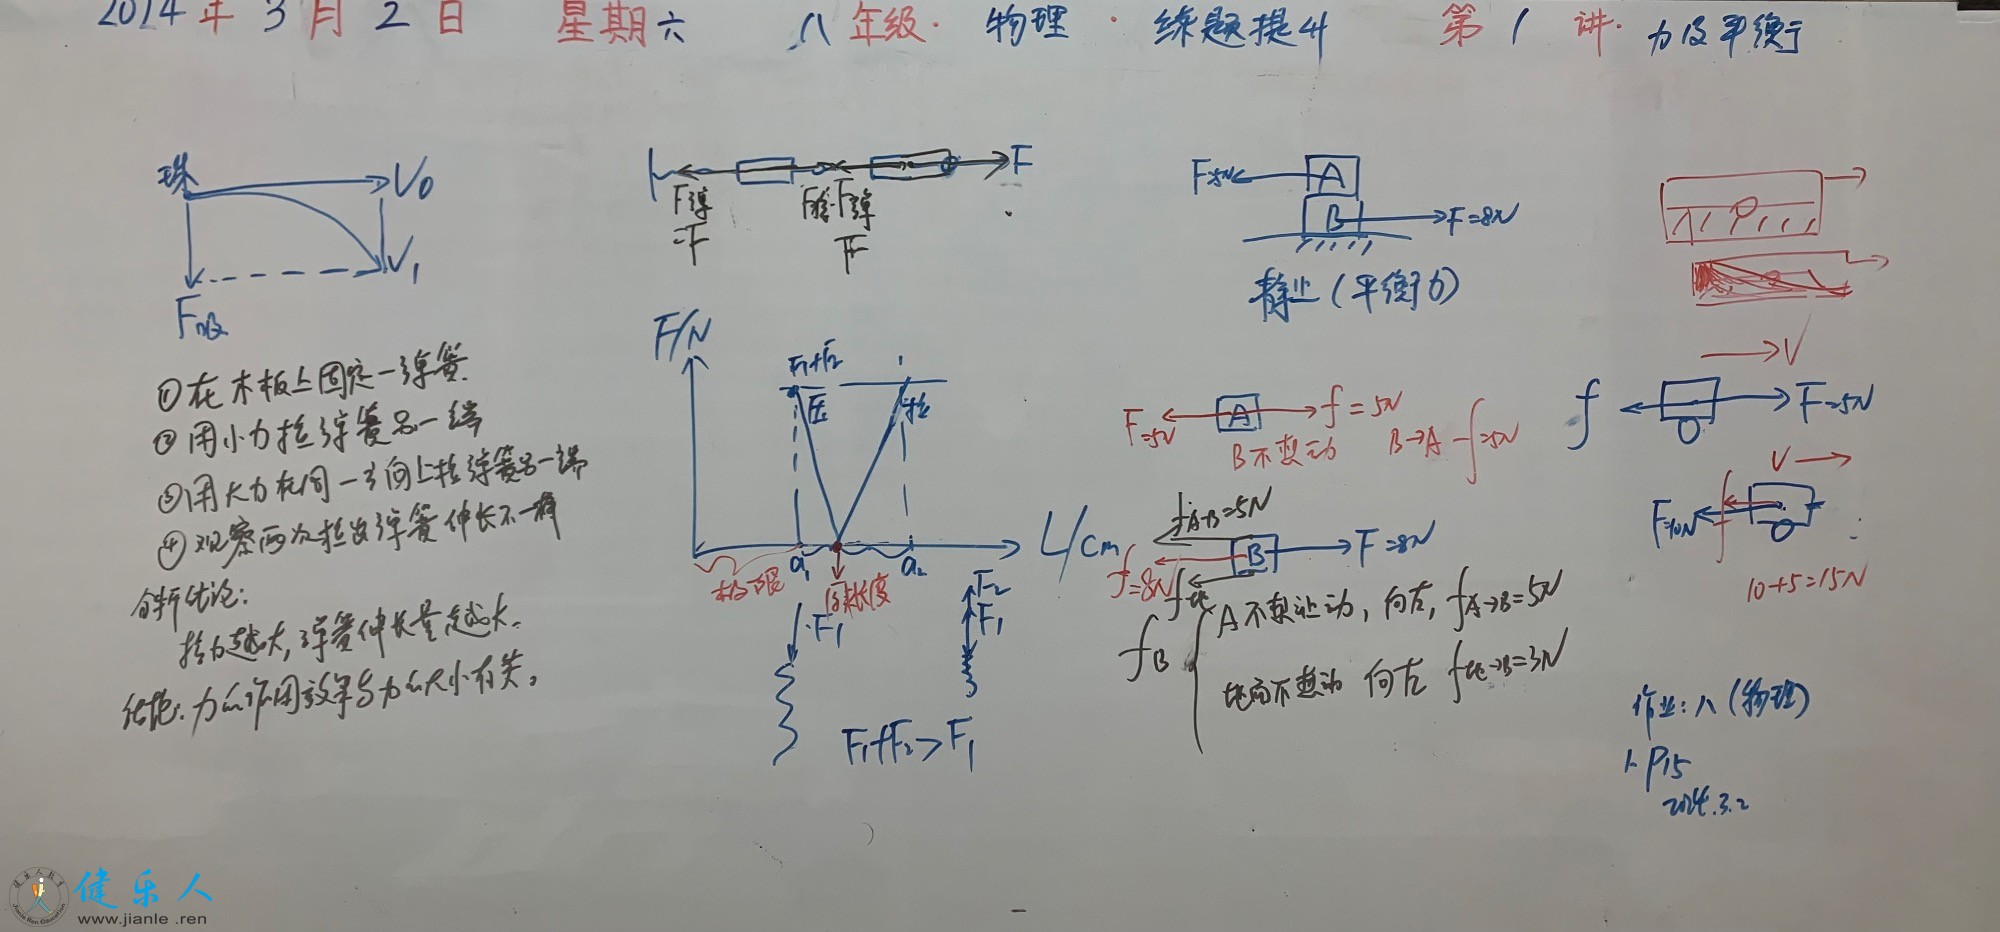 2024年3月2日 星期六 八年级·物理·练题提升 第1讲·力及平衡
珠
V0
V1
F吸
①在木板上固定一弹簧
②用小力拉弹簧另一端
③用大力在同一方向上拉弹簧另一端
④观察两次拉出弹簧伸长不一样
分析结论:
拉力越大,弹簧伸长量越大.
结论:力的作用效果与力的大小有关。
F
F弹
=F
F拉·F弹
F
F/N
F1+F2
压
拉
L/cm
a1
a2
极限
原长度
F1
F2
F1
F1+F2>F1
F=5N
A
B
F=8N
静止(平衡力)
F=5N
A
f=5N
B不想动
B→A f=5N
fA→B=5N
B
F=8N
f=8N
f地
fB
A不想让动,向左,fA→B=5N
地面不想动 向左 f地→B=3N
P
V
f
F=5N
V
F=10N
f
10+5=15N
作业:八(物理)
1. P15
2024.3.2
健乐人
www.jianle.ren